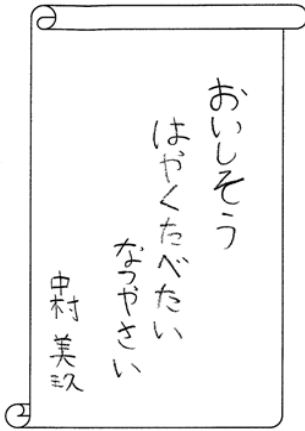 おいしそう
はやくたべたい
なつやさい
中村 美玖